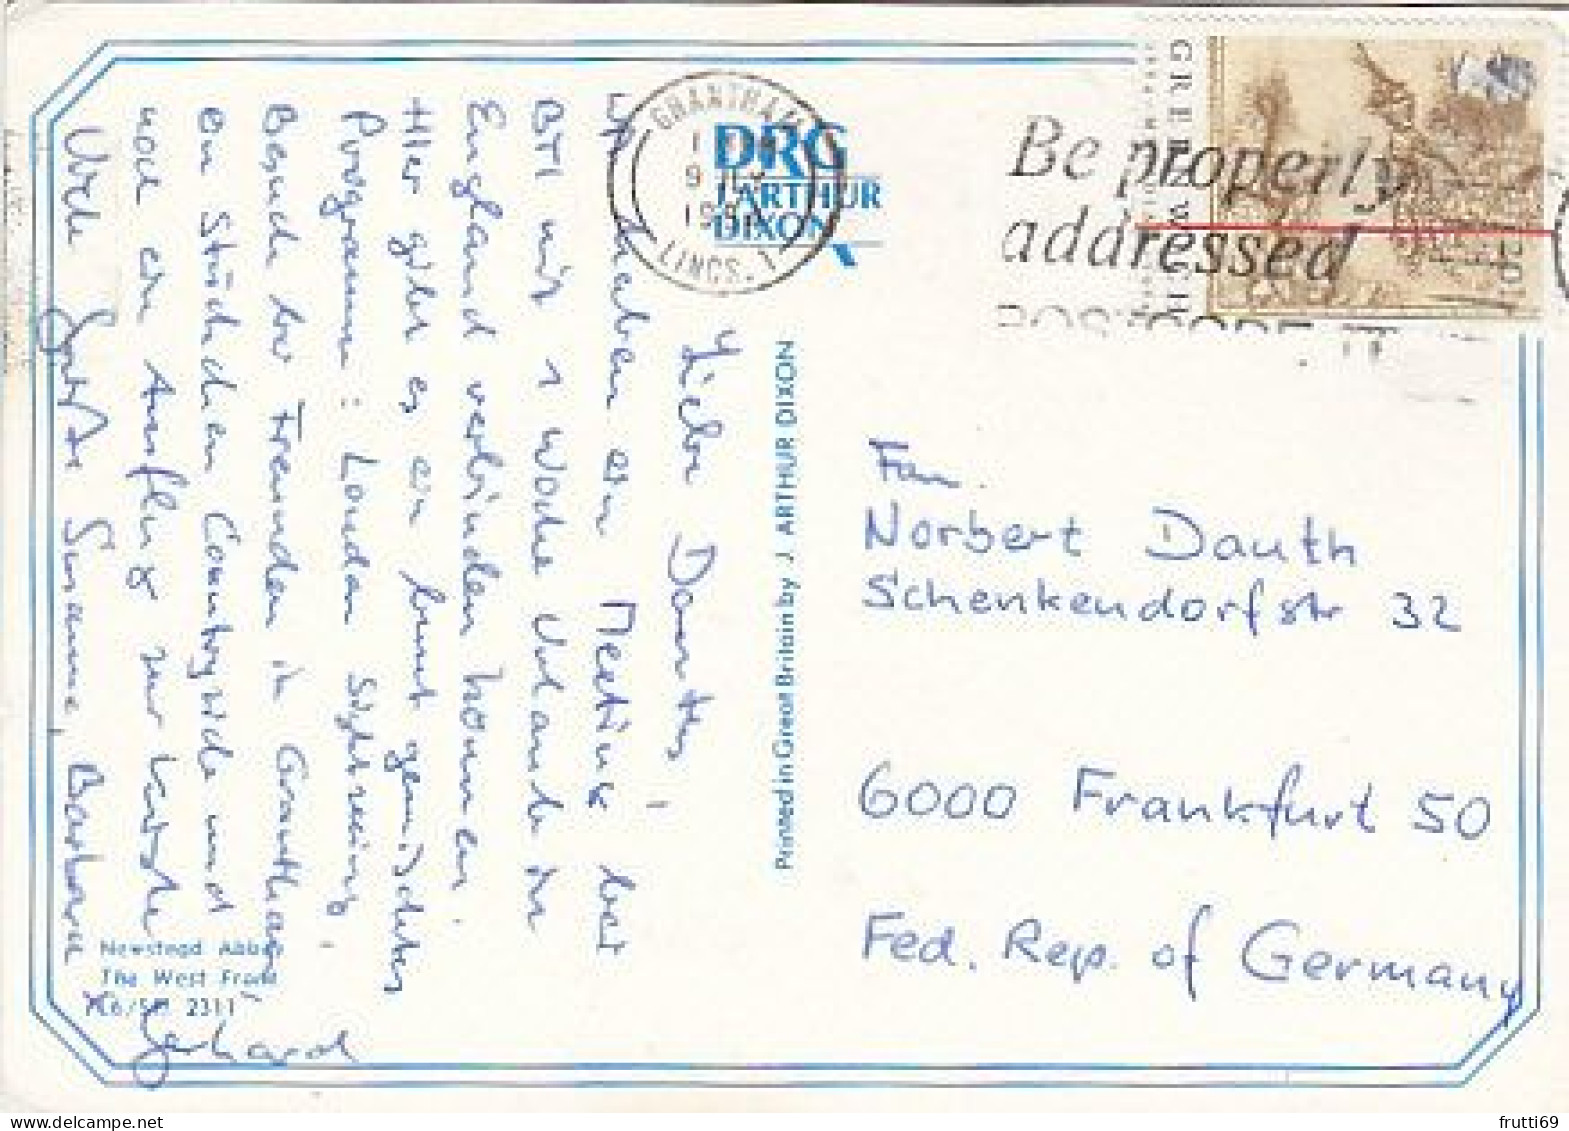 Liebe Dauths,
wir haben ein Meeting bei
BTI mit 1 Woche Urlaub in
England verbinden können.
Hier gibt es ein bunt gemischtes
Programm: London Sightseeing,
Besuch bei Freunden in Grantham
ein Stückchen Countryside und
noch ein Ausflug zur Küste
Viele Grüße Susanne, Barbara
Gerhard
Newstead Abbey
The West Front
2311
Printed in Great Britain by J. ARTHUR DIXON
DRG
J. ARTHUR
DIXON
GRANTHAM
LINCS.
Be properly
addressed
POSTCODE IT
GREENWICH
Fam.
Norbert Dauth
Schenkendorfstr 32
6000 Frankfurt 50
Fed. Rep. of Germany
frutti69